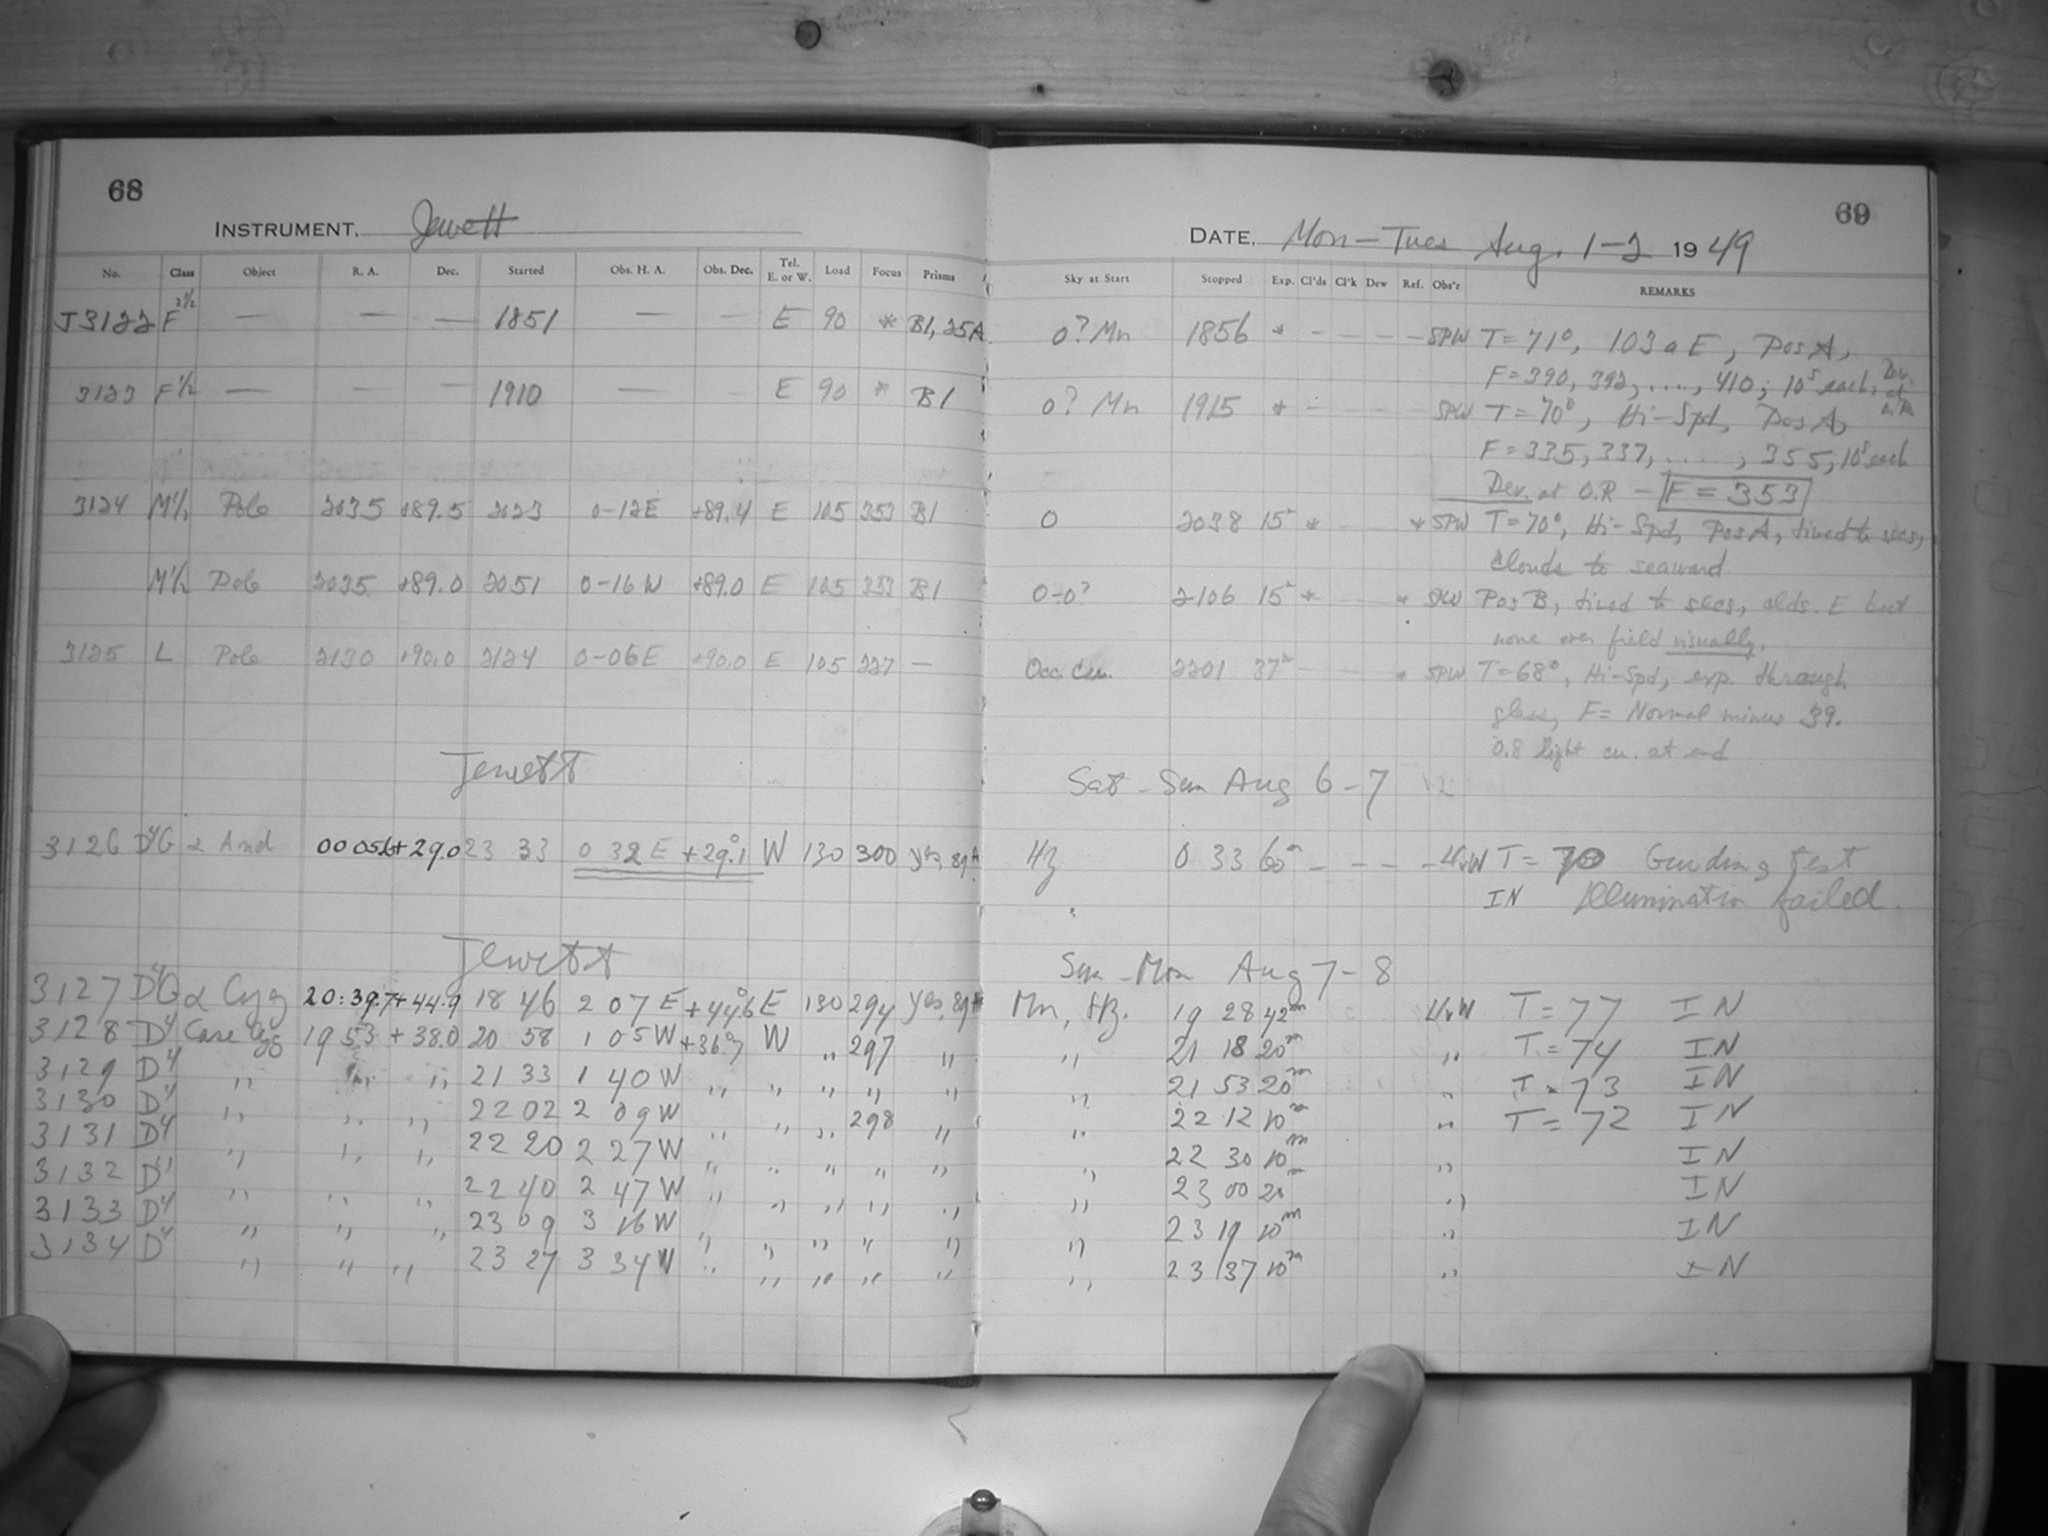 68
INSTRUMENT. Jewett
No. Class Object R. A. Dec. Started Obs. H. A. Obs. Dec. Tel. E. or W. Load Focus Prisms
J3122 F 2½ — — — 1851 — — E 90 * B1, 25A
3123 F½ — — — 1910 — — E 90 * B1
3124 M½ Pole 2035 +89.5 2023 0-12E +89.4 E 105 353 B1
M½ Pole 2035 +89.0 2051 0-16W +89.0 E 105 353 B1
3125 L Pole 2130 +90.0 2124 0-06E +90.0 E 105 227 —
Jewett
3126 D4G α And 00 05.6 +29.0 23 33 0 32 E +29°.1 W 130 300 yes,
Jewett
3127 D4G α Cyg 20:39.7 +44.9 18 46 2 07 E +44°.6 E 130 294 yes,
3128 D4 Cyg 19 53 +38.0 20 58 1 05 W +36°.7 W " 297 "
3129 D4 " " " 21 33 1 40 W " " " " "
3130 D4 " " " 22 02 2 09 W " " " 298 "
3131 D4 " " " 22 20 2 27 W " " " " "
3132 D4 " " " 22 40 2 47 W " " " " "
3133 D4 " " " 23 09 3 16 W " " " " "
3134 D4 " " " 23 27 3 34 W " " " " "
69
DATE. Mon-Tues Aug. 1-2 1949
Sky at Start Stopped Exp. Cl'ds Cl'k Dew Ref. Obs'r REMARKS
0? Mn 1856 * - - - - SPW T=71°, 103aE, Pos A,
F=390, 392, ...., 410; 10s each, Dev. at O.R
0? Mn 1915 * - - - SPW T=70°, Hi-Spd, Pos A,
F=335, 337, ....., 355, 10s each
Dev. at O.R - F=353
0 2038 15m * - - * SPW T=70°, Hi-Spd, Pos A, timed to secs,
clouds to seaward
0-0? 2106 15m * - - * SPW Pos B, timed to secs, clds. E but
none over field visually.
Occ. Cu. 2201 37m - - - * SPW T=68°, Hi-Spd, exp. through
glass, F= Normal minus 39.
0.8 light cu. at end
Sat-Sun Aug 6-7
Hz 0 33 60m - - - - T=70 Guiding test
IN Illumination failed.
Sun-Mon Aug 7-8
Mn, Hz. 19 28 42m T=77 IN
" 21 18 20m " T=74 IN
" 21 53 20m " T=73 IN
" 22 12 10m " T=72 IN
" 22 30 10m " IN
" 23 00 20m " IN
" 23 19 10m " IN
" 23 37 10m " IN